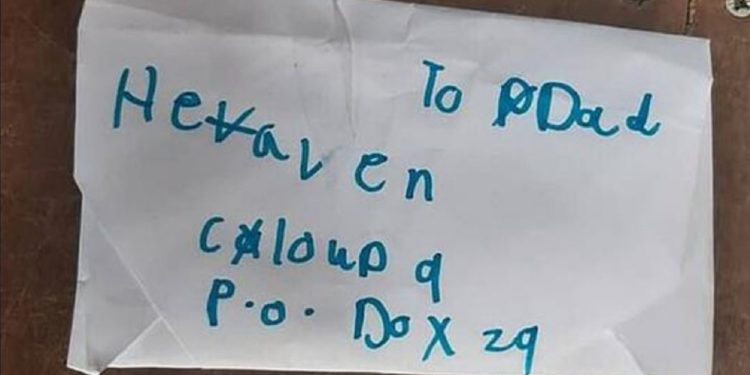 To Dad
Heaven
ClouD 9
P.o. Dox 29